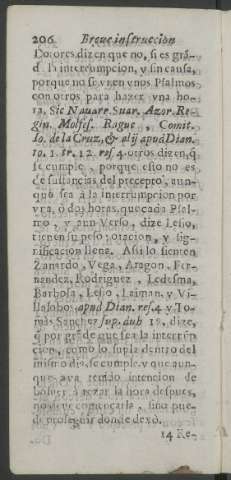 206 Breue instruccion
Dotores dizen que no, si es grã-
d la interrumpcion, y sin causa,
porque no se vnen vnos Psalmos
con otros para hazer vna ho-
ra. Sic Nauarr. Suar. Azor. Re-
gin. Molfes. Bague, Comit.
lo. de la Cruz, & alij apud Dian.
to. 1. tr. 12. res. 4. otros dizen, q̃
se cumple, porque esto no es
de sustancias del precepto, aun-
quẽ sea á la interrumpcion por
vra, ó dos horas, que cada Psal-
mo, y aun Verso, dize Lesio,
tienen su peso, oracion, y sig-
nificacion llena. Assi lo sienten
Zanardo, Vega, Aragon, Fer-
nandez, Rodriguez, Ledesma,
Barbosa, Lesio, Laiman, y Vi-
llalobos apud Dian. res. 4 y To-
mas Sanchez sup. dub 18, dize,
q̃ por grãde que sea la interrũp-
cion, como lo supla dentro del
mismo dia, se cumple, y que aun-
que aya tenido intencion de
boluer á rezar la hora despues,
no deue començarla, sino pue-
de proseguir donde dexò.
14 Re-